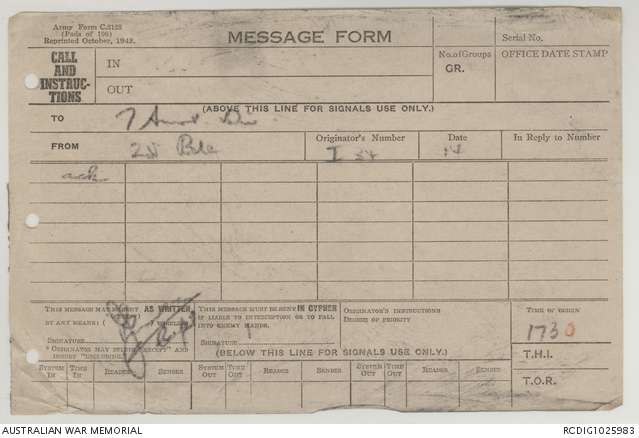 Army Form C.2128
(Pads of 100)
Reprinted October, 1942.
MESSAGE FORM
Serial No.
CALL AND INSTRUCTIONS
IN
OUT
No. of Groups
GR.
OFFICE DATE STAMP
(ABOVE THIS LINE FOR SIGNALS USE ONLY.)
TO 7
FROM 25 Bde
Originator's Number
I 54
Date
14
In Reply to Number
ack
THIS MESSAGE MAY BE SENT AS WRITTEN
BY ANY MEANS (
WIRELESS
SIGNATURE
* ORIGINATOR MAY
EXCEPT" AND
INSERT "INCLUDING."
THIS MESSAGE MUST BE SENT IN CYPHER
IF LIABLE TO INTERCEPTION OR TO FALL
INTO ENEMY HANDS.
SIGNATURE
ORIGINATOR'S INSTRUCTIONS
DEGREE OF PRIORITY
TIME OF ORIGIN
1730
T.H.I.
T.O.R.
(BELOW THIS LINE FOR SIGNALS USE ONLY.)
SYSTEM IN TIME IN READER SENDER SYSTEM OUT TIME OUT READER SENDER SYSTEM OUT TIME OUT READER SENDER
AUSTRALIAN WAR MEMORIAL
RCDIG1025983